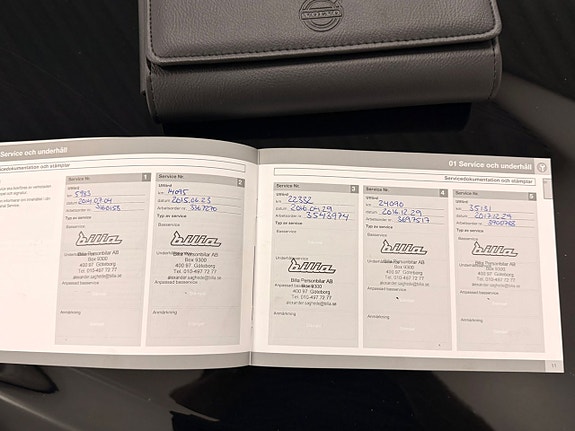 VOLVO
Service och underhåll
Servicedokumentation och stämplar
Service Nr. 1
Utförd
km 5953
datum 2014.09.04
Typ av service
Basservice
bilia
Bilia Personbilar AB
Box 9300
400 97 Göteborg
Tel. 010-497 72 77
Anpassad basservice
Anmärkning
Service Nr. 2
Utförd
km 14095
datum 2015.06.23
Arbetsorder nr 3367270
Typ av service
Basservice
bilia
Bilia Personbilar AB
Box 9300
400 97 Göteborg
Tel. 010-497 72 77
alexander.saghede@bilia.se
Anpassad basservice
Anmärkning
01 Service och underhåll
Servicedokumentation och stämplar
Service Nr. 3
Utförd
km 22332
datum 2016.04.29
Arbetsorder nr 3543974
Typ av service
Basservice
bilia
Bilia Personbilar AB
Box 9300
400 97 Göteborg
Tel. 010-497 72 77
alexander.saghede@bilia.se
Anpassad basservice
Anmärkning
Service Nr. 4
Utförd
km 24090
datum 2016.12.29
Arbetsorder nr 3697517
Typ av service
Basservice
bilia
Bilia Personbilar AB
Box 9300
400 97 Göteborg
Tel. 010-497 72 77
alexander.saghede@bilia.se
Anpassad basservice
Anmärkning
Service Nr. 5
Utförd
km 35131
datum 2017.12.29
Typ av service
Basservice
bilia
Bilia Personbilar AB
Box 9300
400 97 Göteborg
Tel. 010-497 72 77
alexander.saghede@bilia.se
Anpassad basservice
Anmärkning
11